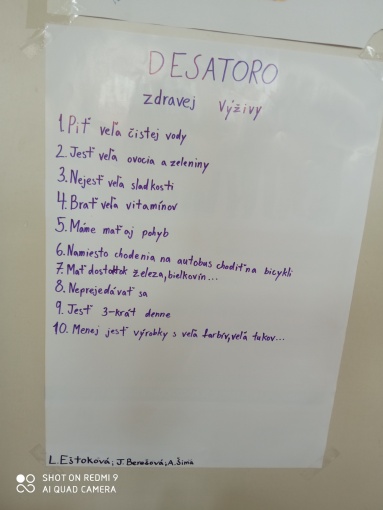 DESATORO
zdravej výživy
1. Piť veľa čistej vody
2. Jesť veľa ovocia a zeleniny
3. Nejesť veľa sladkosti
4. Brať veľa vitamínov
5. Máme mať aj pohyb
6. Namiesto chodenia na autobus chodiť na bicykli
7. Mať dostatok železa, bielkovín...
8. Neprejedávať sa
9. Jesť 3-krát denne
10. Menej jesť výrobky s veľa farbív, veľa tukov...
L. Eštoková, J. Berešová, A. Šima
SHOT ON REDMI 9
AI QUAD CAMERA